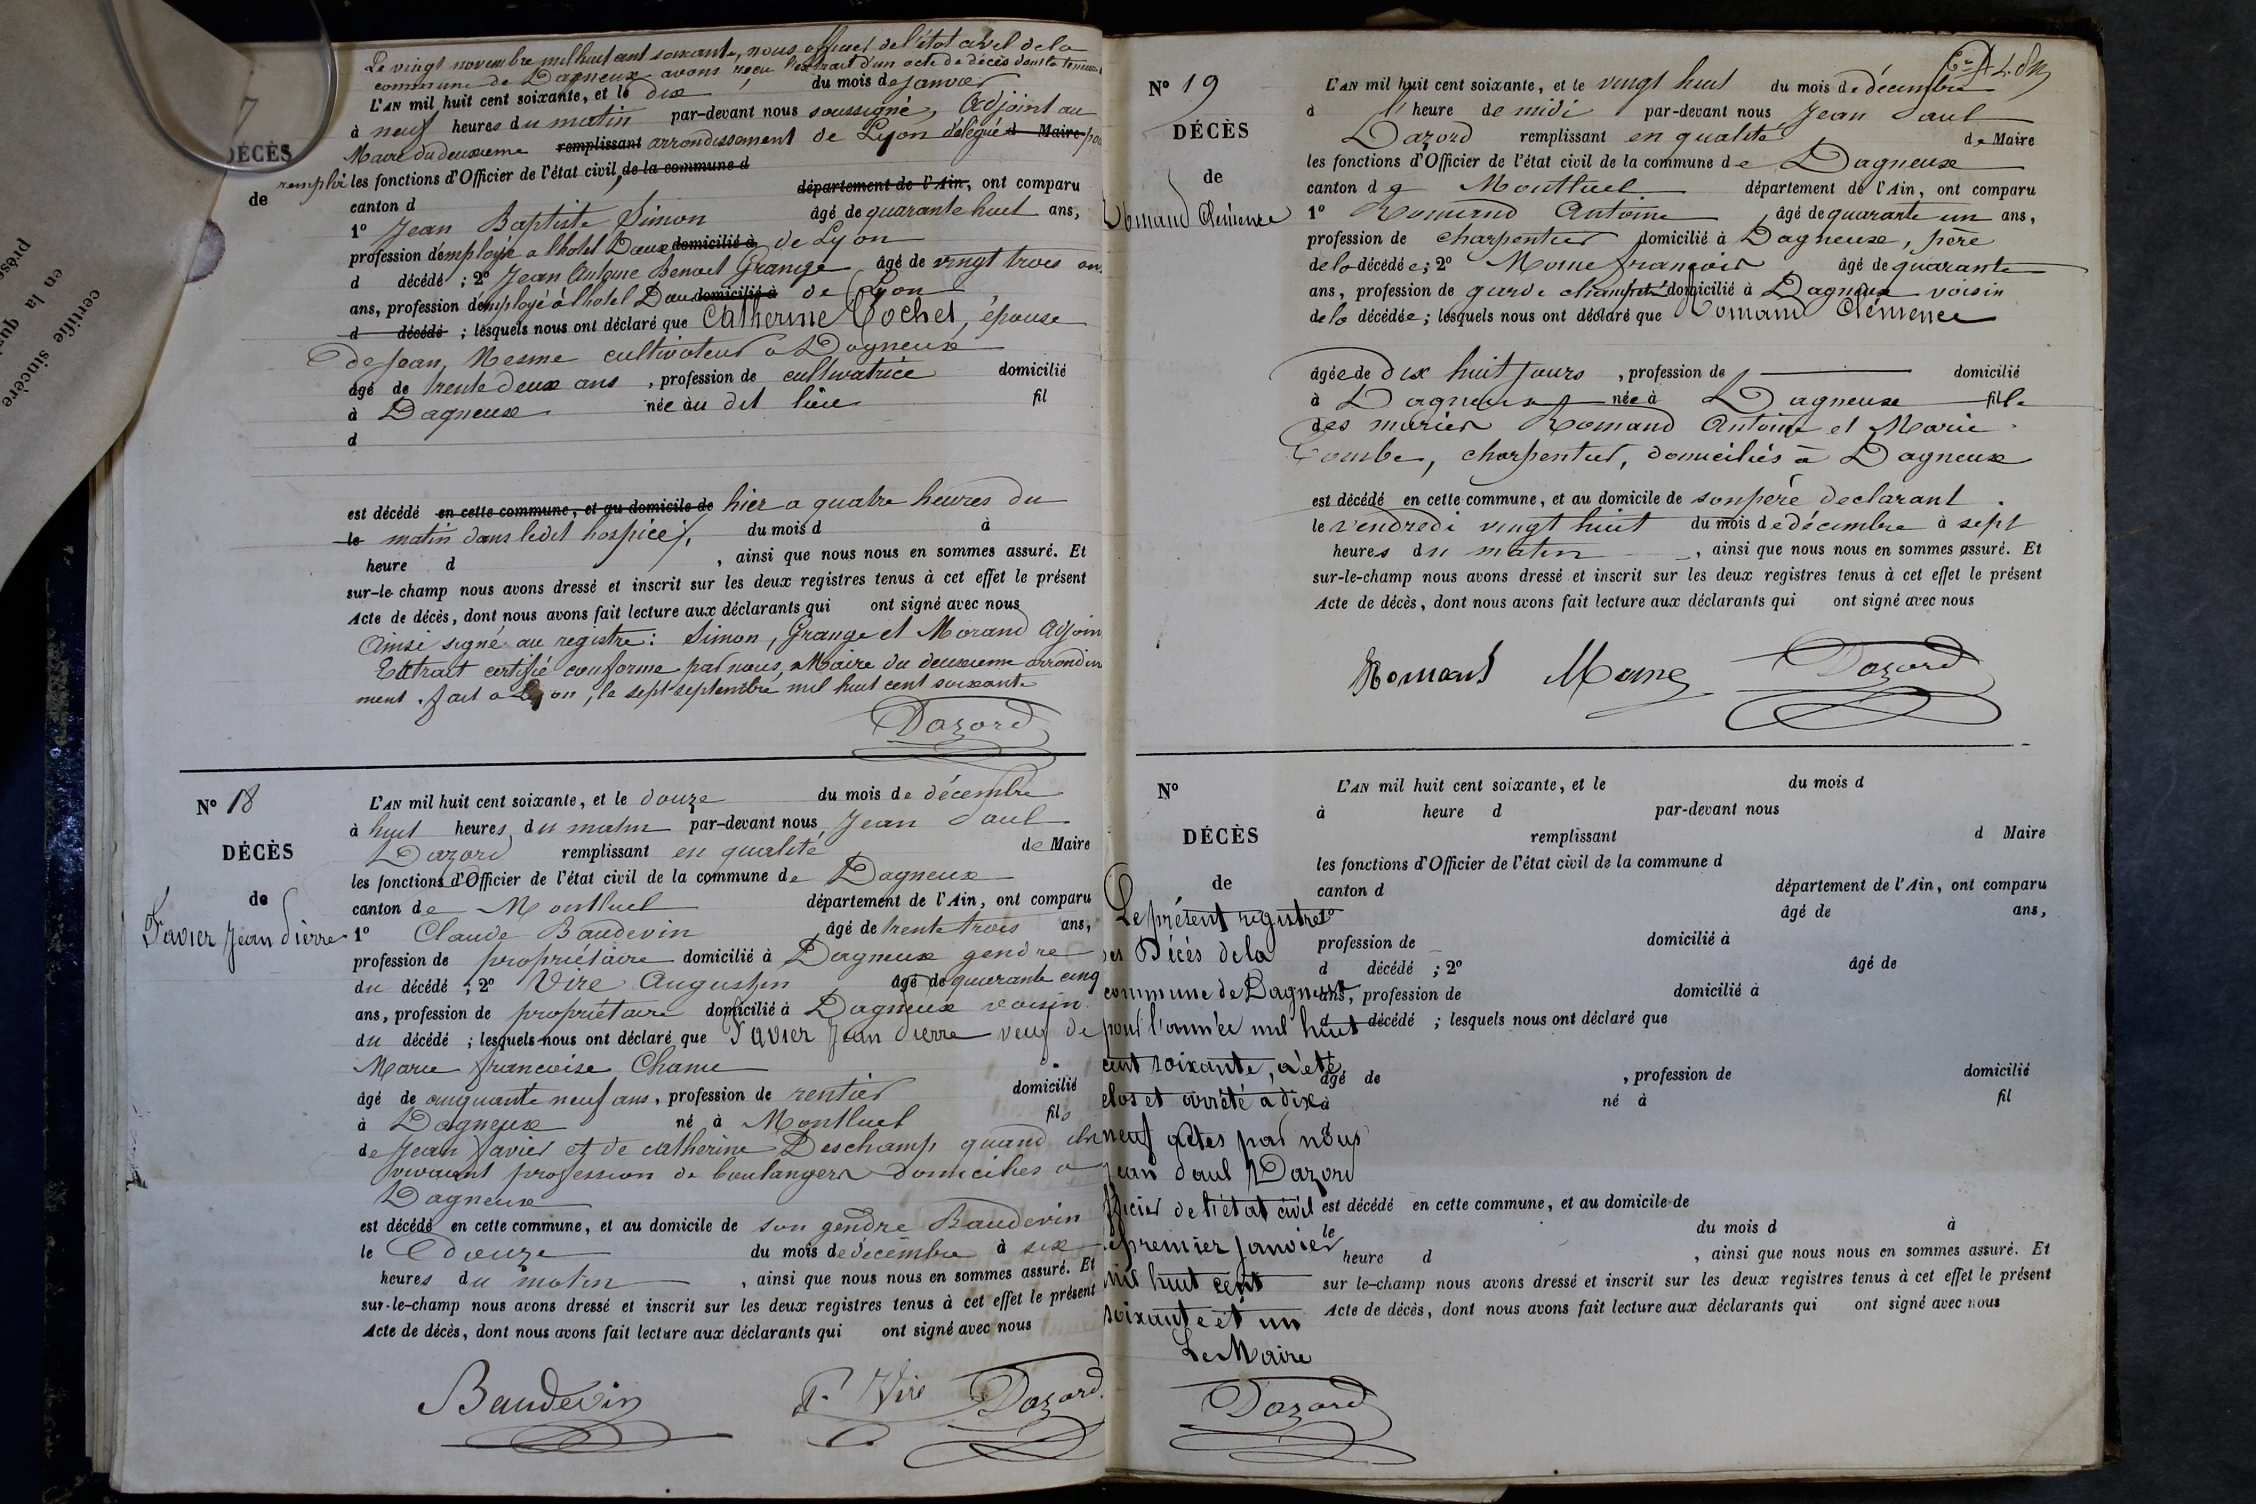 Le vingt novembre mil huit cent soixante, nous officier de l'état civil de la
commune de Dagneux avons reçu l'extrait d'un acte de décès dont la teneur
L'AN mil huit cent soixante, et le dix du mois de janvier
à neuf heures du matin par-devant nous soussigné, Adjoint au
Maire du deuxieme remplissant arrondissement de Lyon délégué d Maire pour
remplir les fonctions d'Officier de l'état civil, de la commune d
canton d département de l'Ain, ont comparu
1º Jean Baptiste Simon âgé de quarante huit ans,
profession d'employé a l'hotel Dieu domicilié à de Lyon
d décédé ; 2º Jean Antoine Benoit Grange âgé de vingt trois ans
ans, profession d'employé à l'hotel Dieu domicilié à de Lyon
d décédé ; lesquels nous ont déclaré que Catherine Cochet, épouse
de Jean Nesme cultivateur a Dagneux
âgé de trente deux ans , profession de cultivatrice domicilié
à Dagneux née àu dit lieu fil
d
est décédé en cette commune, et au domicile de hier a quatre heures du
le matin dans ledit hospice ; du mois d à
heure d , ainsi que nous nous en sommes assuré. Et
sur-le-champ nous avons dressé et inscrit sur les deux registres tenus à cet effet le présent
Acte de décès, dont nous avons fait lecture aux déclarants qui ont signé avec nous
Ainsi signé au registre : Simon, Grange et Morand adjoin
Extrait certifié conforme par nous, Maire du deuxieme arrondisse
ment. fait a Lyon, le sept septembre mil huit cent soixante
Dazord
DÉCÈS
de
7
certifie sincère
en la qua
prése
Nº 18
DÉCÈS
de
Favier Jean Pierre
L'AN mil huit cent soixante, et le douze du mois de décembre
à huit heures du matin par-devant nous Jean Paul
Dazord remplissant en qualité de Maire
les fonctions d'Officier de l'état civil de la commune de Dagneux
canton de Montluel département de l'Ain, ont comparu
1º Claude Baudevin âgé de trente trois ans,
profession de propriétaire domicilié à Dagneux gendre
du décédé ; 2º Vire Augustin âgé de quarante cinq
ans, profession de propriétaire domicilié à Dagneux voisin
du décédé ; lesquels nous ont déclaré que Favier Jean Pierre veuf de
Marie françoise Chanu
âgé de cinquante neuf ans, profession de rentier domicilié
à Dagneux né à Montluel fils
de Jean Favier et de catherine Deschamp quand ils
vivaient profession de boulangers domiciliés a
Dagneux
est décédé en cette commune, et au domicile de son gendre Baudevin
le douze du mois de décembre à six
heures du matin , ainsi que nous nous en sommes assuré. Et
sur-le-champ nous avons dressé et inscrit sur les deux registres tenus à cet effet le présent
Acte de décès, dont nous avons fait lecture aux déclarants qui ont signé avec nous
Baudevin Vire Dazord
Nº 19
DÉCÈS
de
Romand Clémence
L'AN mil huit cent soixante, et le vingt huit du mois de décembre
à l' heure de midi par-devant nous Jean Paul
Dazord remplissant en qualité de Maire
les fonctions d'Officier de l'état civil de la commune de Dagneux
canton de Montluel département de l'Ain, ont comparu
1º Romand Antoine âgé de quarante un ans,
profession de charpentier domicilié à Dagneux, père
de la décédée ; 2º Morne françois âgé de quarante
ans, profession de garde champetre domicilié à Dagneux voisin
de la décédée ; lesquels nous ont déclaré que Romand Clémence
âgée de dix huit jours , profession de domicilié
à Dagneux née à Dagneux fille
des mariés Romand Antoine et Marie
Combe, charpentier, domiciliés à Dagneux
est décédé en cette commune, et au domicile de son père declarant
le vendredi vingt huit du mois de décembre à sept
heures du matin , ainsi que nous nous en sommes assuré. Et
sur-le-champ nous avons dressé et inscrit sur les deux registres tenus à cet effet le présent
Acte de décès, dont nous avons fait lecture aux déclarants qui ont signé avec nous
Romand Morne Dazord
Nº
DÉCÈS
de
Le présent registre
des Décès de la
commune de Dagneux
pour l'année mil huit
cent soixante, a été
clos et arrêté a dix
neuf actes par nous
Jean Paul Dazord
officier de l'état civil
le premier janvier
mil huit cent
soixante et un
Le Maire
Dazord
L'AN mil huit cent soixante, et le du mois d
à heure d par-devant nous
remplissant d Maire
les fonctions d'Officier de l'état civil de la commune d
canton d département de l'Ain, ont comparu
1º âgé de ans,
profession de domicilié à
d décédé ; 2º âgé de
ans, profession de domicilié à
d décédé ; lesquels nous ont déclaré que
âgé de , profession de domicilié
à né à fil
d
est décédé en cette commune, et au domicile de
le du mois d à
heure d , ainsi que nous nous en sommes assuré. Et
sur le-champ nous avons dressé et inscrit sur les deux registres tenus à cet effet le présent
Acte de décès, dont nous avons fait lecture aux déclarants qui ont signé avec nous